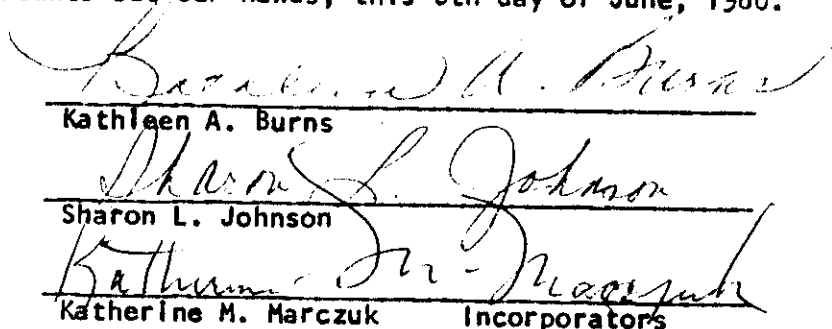 set our hands, this day of June,
Kathleen A. Burns
Kathleen A. Burns
Sharon L. Johnson
Sharon L. Johnson
Katherine M. Marczuk
Katherine M. Marczuk Incorporators